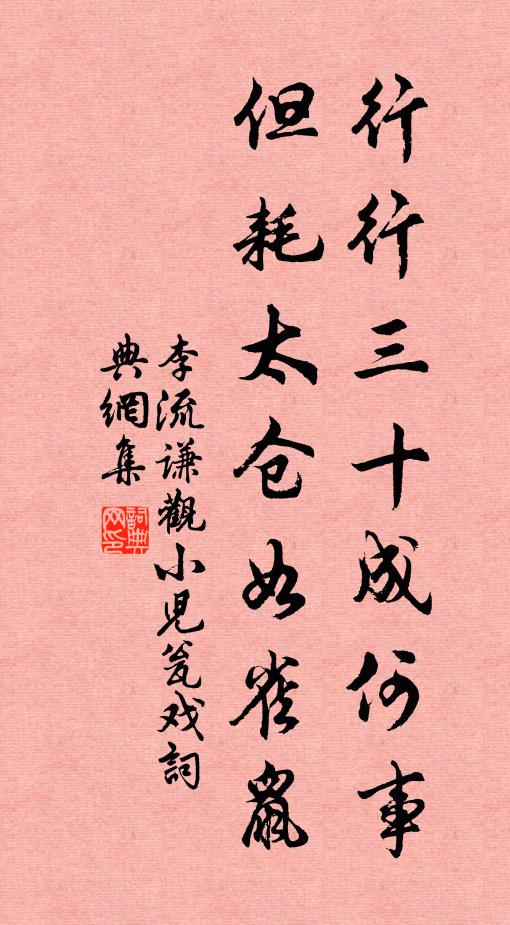 行行三十成何事
但耗太仓如雀鼠
李流谦觀小児瓮戏詞
典網集
詞典网印